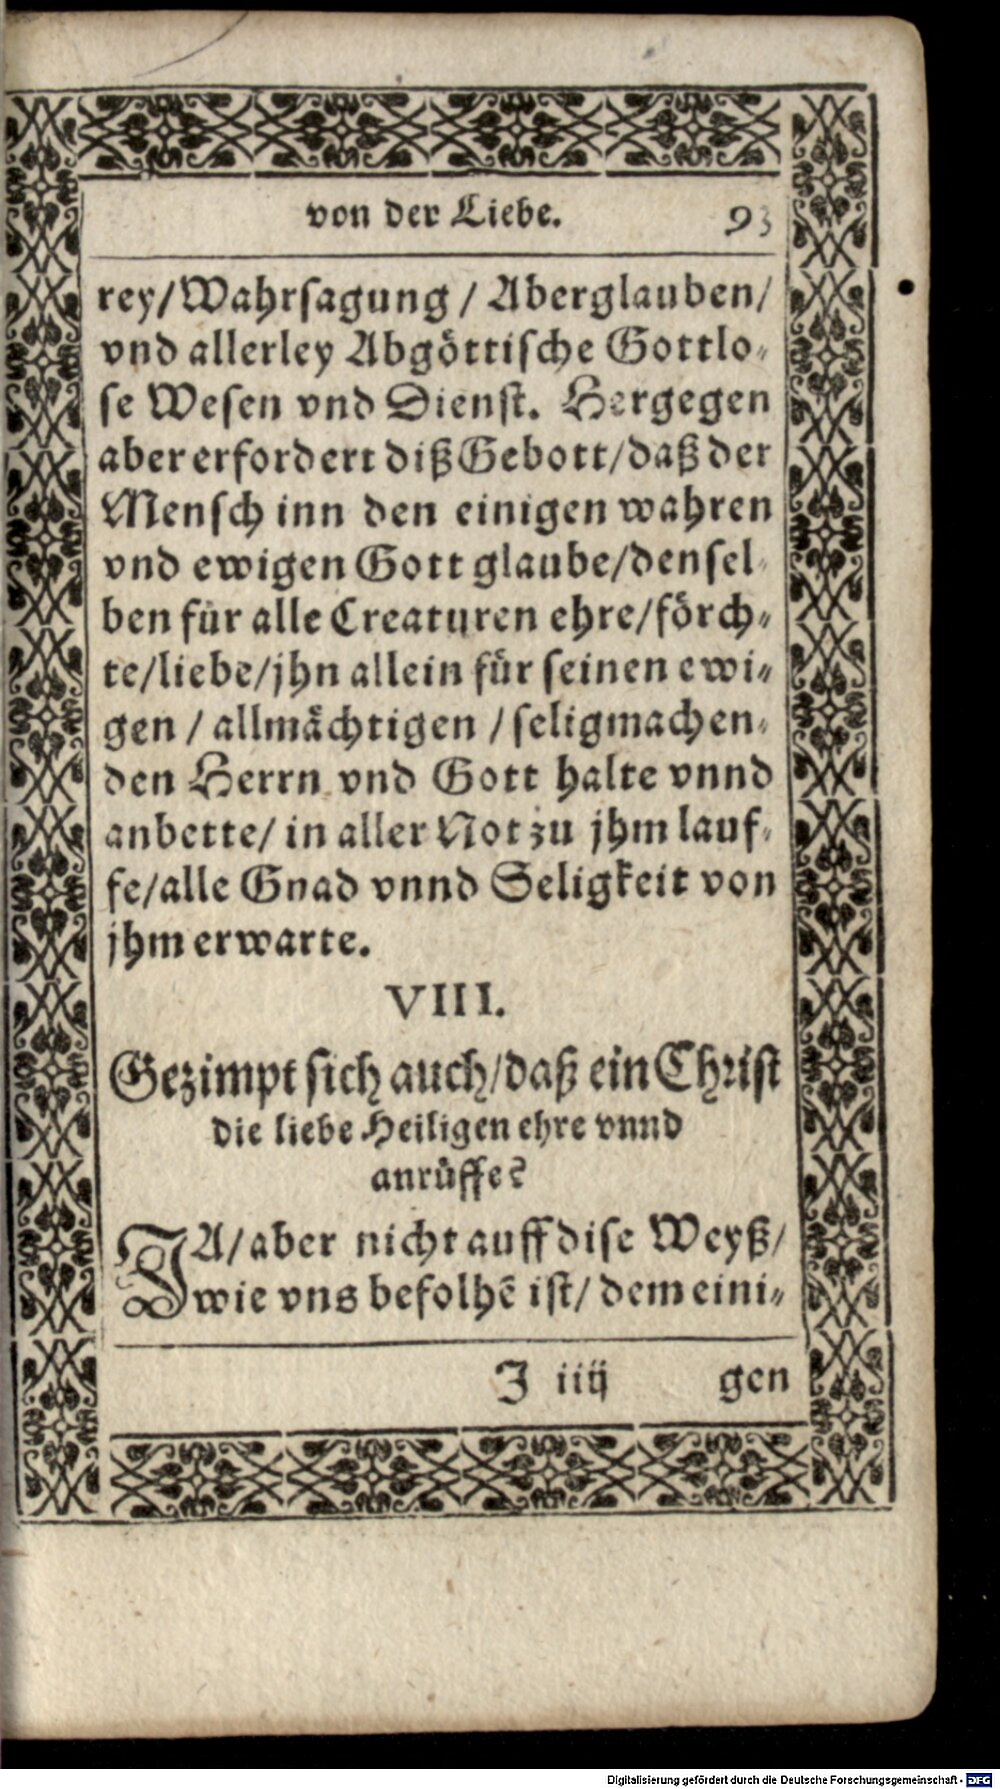 von der Liebe. 93
rey/Wahrsagung / Aberglauben/
vnd allerley Abgöttische Gottlo-
se Wesen vnd Dienst. Hergegen
aber erfordert diß Gebott/daß der
Mensch inn den einigen wahren
vnd ewigen Gott glaube/densel-
ben für alle Creaturen ehre/förch-
te/liebe/jhn allein für seinen ewi-
gen / allmächtigen / seligmachen-
den Herrn vnd Gott halte vnnd
anbette/ in aller Not zu jhm lauf-
fe/alle Gnad vnnd Seligkeit von
jhm erwarte.
VIII.
Gezimpt sich auch/daß ein Christ
die liebe Heiligen ehre vnnd
anrůffe?
JA/aber nicht auff dise Weyß/
wie vns befolhẽ ist/ dem eini-
J iiij gen
Digitalisierung gefördert durch die Deutsche Forschungsgemeinschaft - DFG